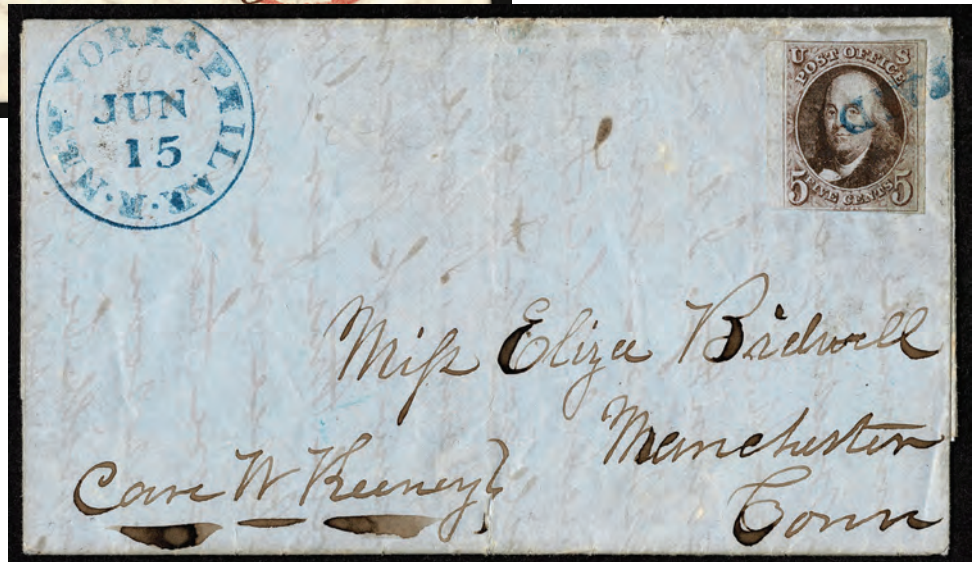 NEW YORK & PHILA. R. R.
JUN
15
U S
POST OFFICE
FIVE CENTS
5 5
CTS
Miſs Eliza Bidwell
Manchester
Care W Keeney
Conn